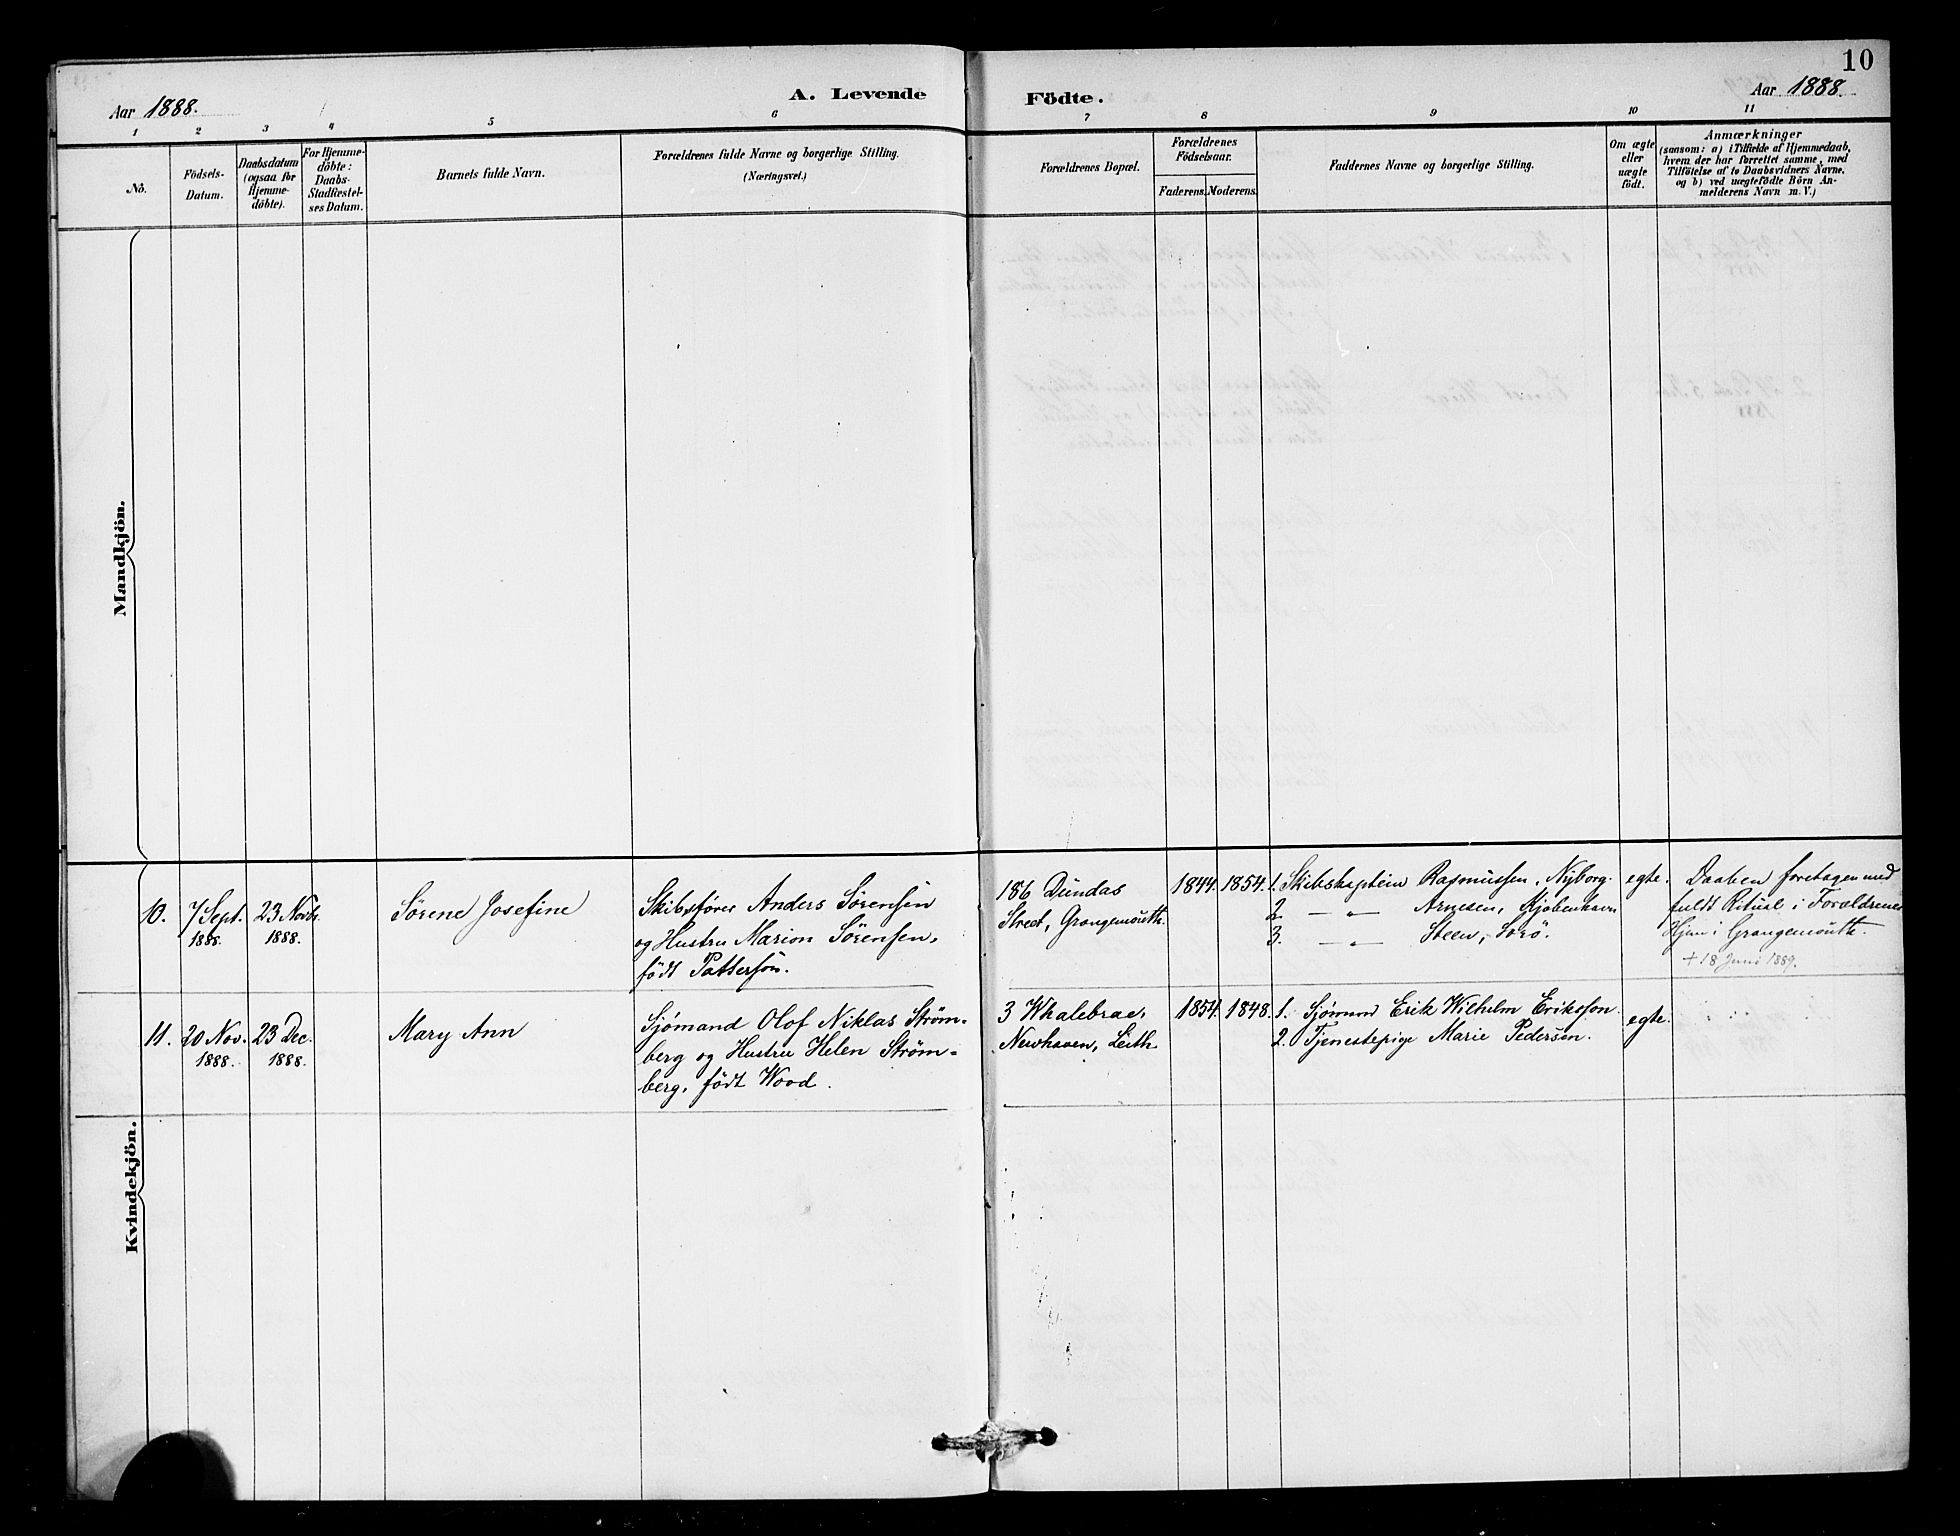 10
Aar 1888.
A. Levende Födte.
Aar 1888.
1 2 3 4 5 6 7 8 9 10 11
No.
Födsels-
Datum.
Daabsdatum
(ogsaa for
Hjemme-
döbte).
For Hjemme-
döbte:
Daabs-
Stadfæstel-
ses Datum.
Barnets fulde Navn.
Forældrenes fulde Navne og borgerlige Stilling.
(Næringsvei.)
Forældrenes Bopæl.
Forældrenes
Födselsaar.
Faderens. Moderens.
Faddernes Navne og borgerlige Stilling.
Om ægte
eller
uægte
födt.
Anmærkninger
(saasom: a) i Tilfælde af Hjemmedaab,
hvem der har forrettet samme, med
Tilföielse af to Daabsvidners Navne,
og b) ved uægtefödte Börn An-
melderens Navn m.V.)
Mandkjön.
10.
7 Sept.
1888.
23 Novb.
1888.
Sörene Josefine
Skibsförer Anders Sörensen
og Hustru Marion Sörensen,
födt Patterson.
186 Dundas
Street, Grangemouth.
1844.
1854.
1. Skibskaptein Rasmussen, Nyborg.
2. — " — Arnesen, Kjöbenhavn
3. — " — Steen, Sorö.
egte.
Daaben foretagen med
fuldt Ritual i Forældrenes
Hjem i Grangemouth.
+ 18 Juni 1889.
11.
20 Nov.
1888.
23 Dec.
1888.
Mary Ann
Sjömand Olof Niklas Ström-
berg og Hustru Helen Ström-
berg, födt Wood.
3 Whalebrae,
Newhaven, Leith.
1854.
1848.
1. Sjömand Erik Wilhelm Eriksson.
2. Tjenestepige Marie Pedersen.
egte.
Kvindekjön.